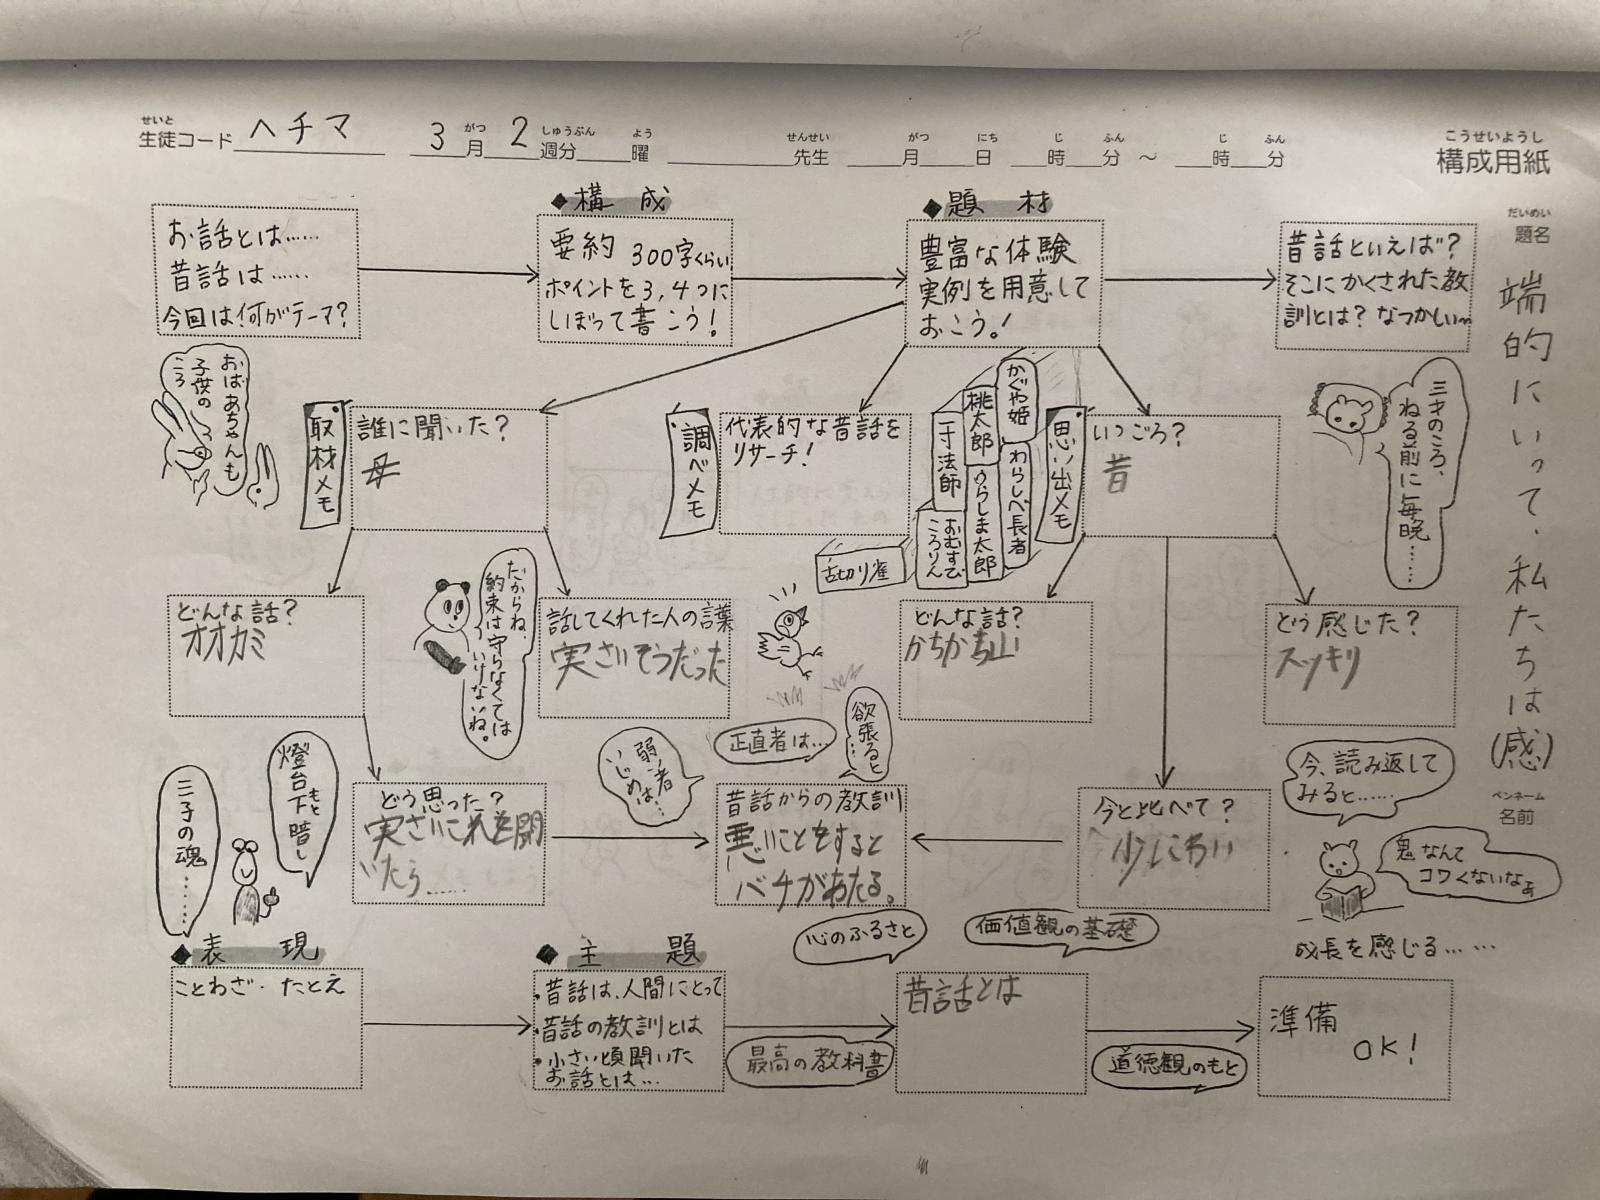 せいと
生徒コード ヘチマ
がつ しゅうぶん よう
3月2週分 曜
せんせい
先生
がつ にち じ ふん じ ふん
月 日 時 分 ～ 時 分
こうせいようし
構成用紙
だいめい
題名
端的にいって、私たちは(感)
ペンネーム
名前
お話とは……
昔話は……
今回は何がテーマ?
◆構成
要約 300字くらい
ポイントを3,4つに
しぼって書こう!
◆題材
豊富な体験
実例を用意して
おこう。!
昔話といえば?
そこにかくされた教
訓とは? なつかしい〜
おばあちゃんも
子供の
ころ
取材メモ
誰に聞いた?
母
調べメモ
代表的な昔話を
リサーチ!
かぐや姫
桃太郎
一寸法師
わらしべ長者
うらしま太郎
おむすび
ころりん
舌切り雀
思い出メモ
いつごろ?
昔
三才のころ、
ねる前に毎晩……
どんな話?
オオカミ
だからね、
約束は守らなくては
いけないね。
話してくれた人の言葉
実さいそうだった
どんな話?
かちかち山
どう感じた?
スッキリ
三子の魂……
燈台下暗し
もと
どう思った?
実さいこれを聞
いたら……
弱い者
いじめは…
正直者は…
欲張ると
…
昔話からの教訓
悪いことをすると
バチがあたる。
今と比べて?
少しこわい
今、読み返して
みると……
鬼なんて
コワくないなぁ
成長を感じる……
心のふるさと
価値観の基礎
◆表現
ことわざ・たとえ
◆主題
・昔話は、人間にとって
・昔話の教訓とは
・小さい頃聞いた
お話とは…
最高の教科書
昔話とは
道徳観のもと
準備
OK!